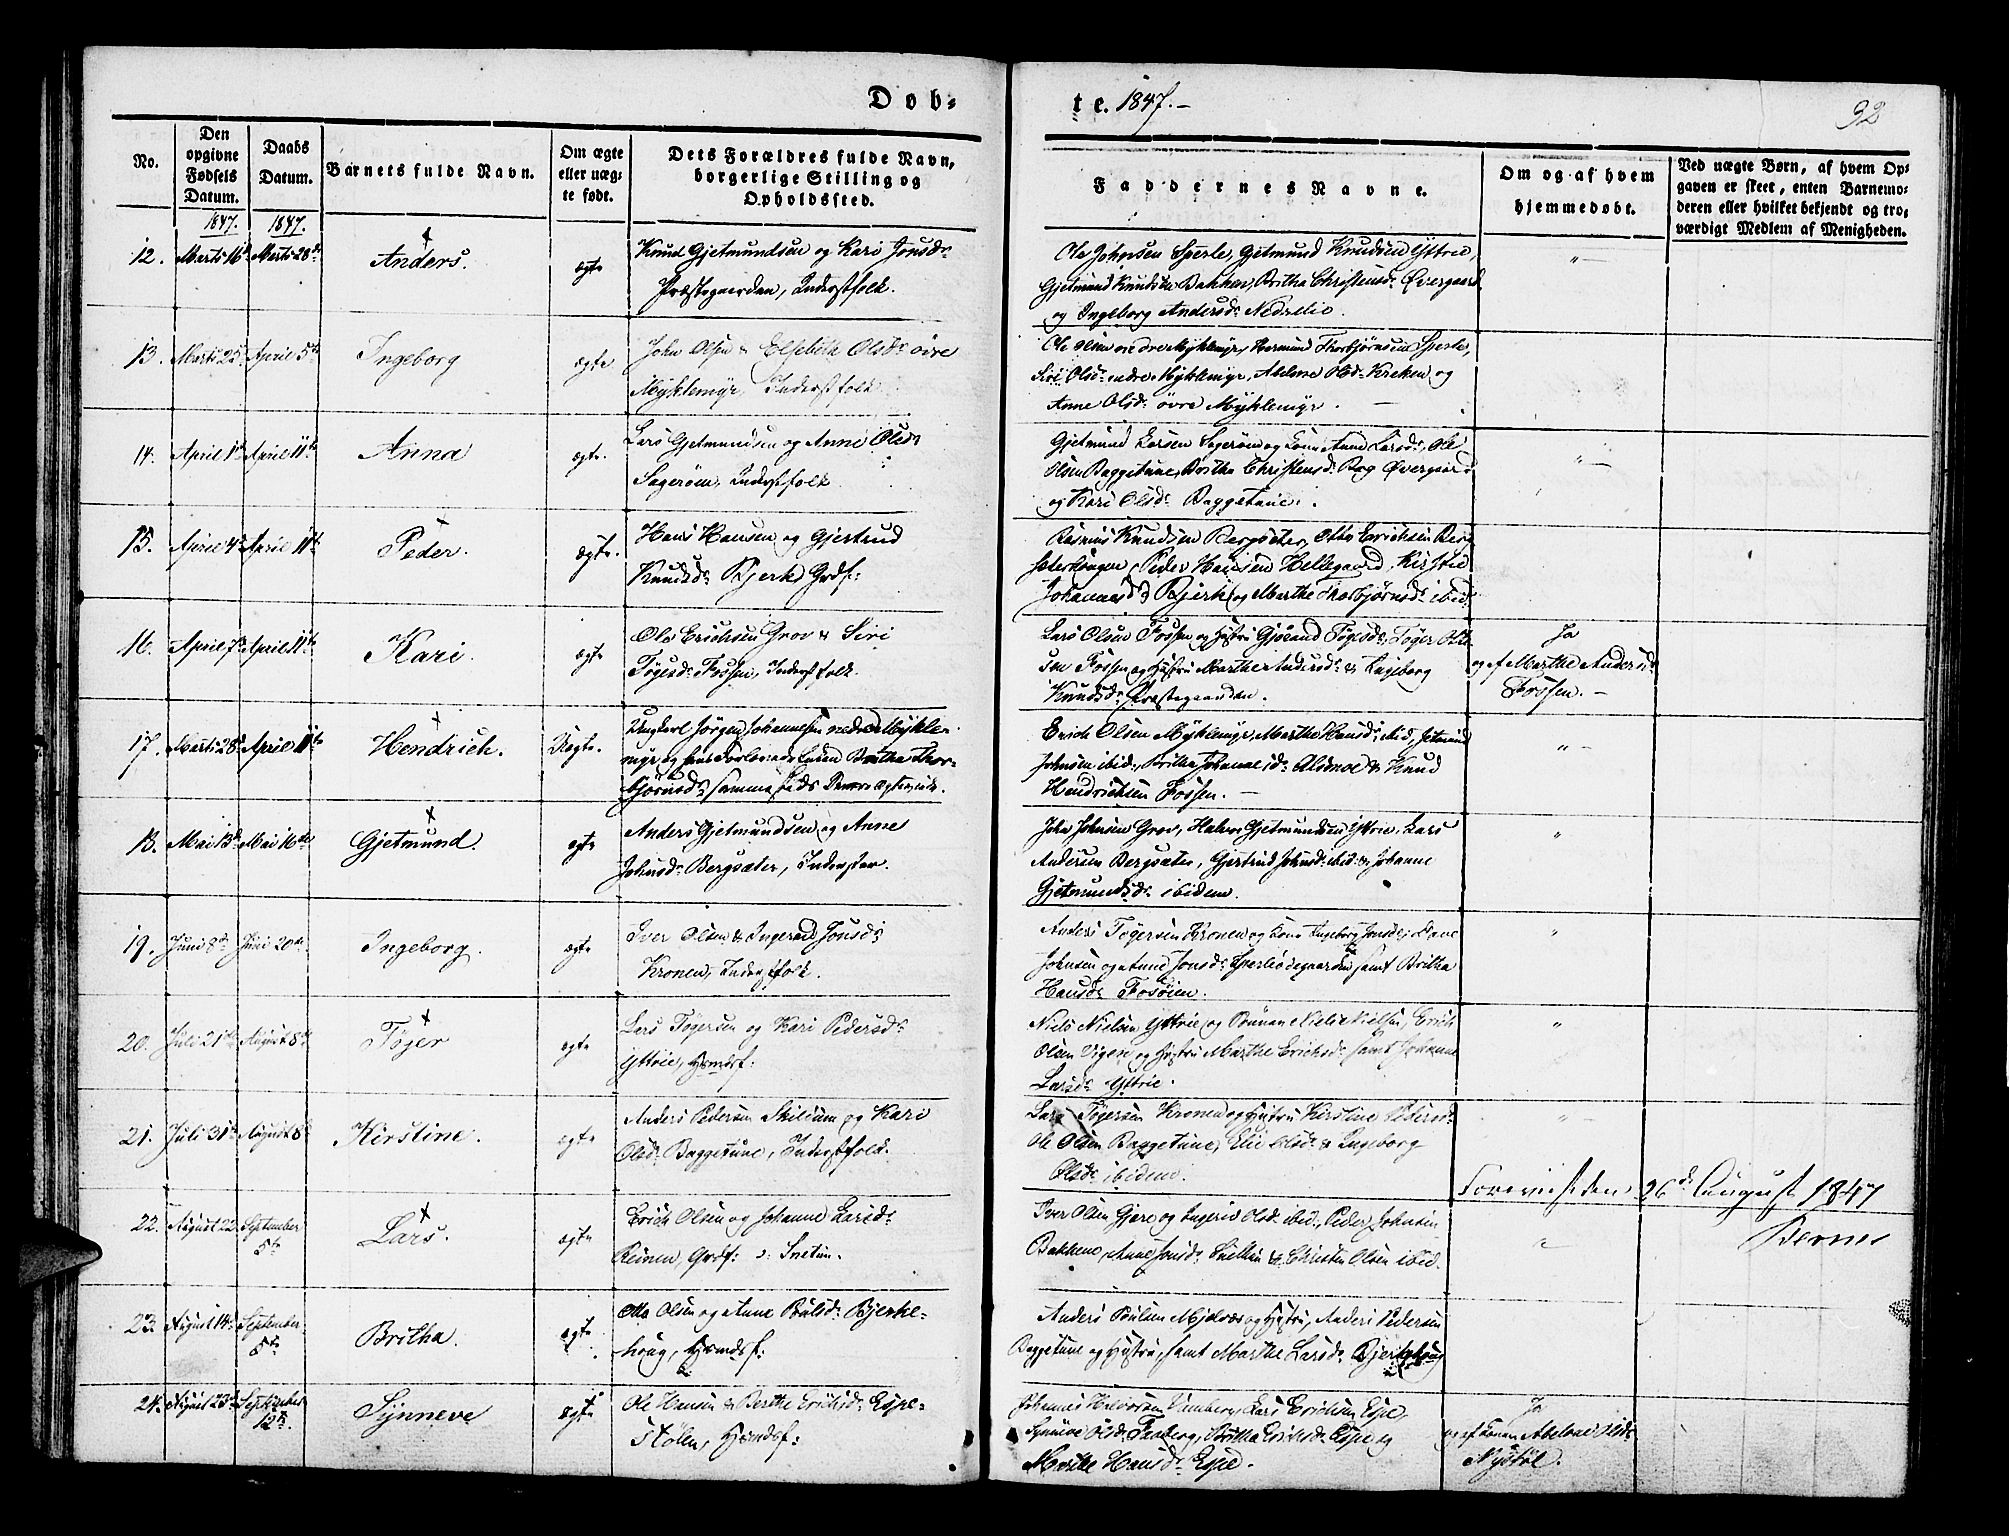 Døb-
te. 1847.-
92
No.
Den opgivne Fødsels Datum.
Daabs Datum.
Barnets fulde Navn.
Om ægte eller uægte født.
Dets Forældres fulde Navn, borgerlige Stilling og Opholdssted.
Faddernes Navne.
Om og af hvem hjemmedøbt.
Ved uægte Børn, af hvem Opgaven er skeet, enten Barnemoderen eller hvilket bekjendt og troværdigt Medlem af Menigheden.
1847. 1847.
12. Marts 16de Marts 28de Anders. ægte
Knud Gjetmundsen og Kari Jonsdr
Præstegaarden, Inderstfolk.
Ole Johnsen Sperle, Gjetmund Knudsen Yttrie,
Gjetmund Knudsen Bakken, Britha Christensdr Øvergaard
og Ingeborg Andersdr Nedrelie.
13. Marts 25de April 5te Ingeborg ægte
John Olsen & Elsebeth Olsdr øvre
Myklemyr, Inderstfolk
Ole Olsen nedre Myklemyr, Hermund Thorbjørnsen Sperle,
Siri Olsdr nedre Myklemyr, Abelone Olsdr Kreken og
Anne Olsdr øvre Myklemyr. —
14. April 1ste April 11te Anna ægte.
Lars Gjetmundsen og Anne Olsdr
Sagerøen, Inderstfolk
Gjetmund Larsen Sagerøen og Kone Anna Larsdr, Ole
Olsen Baggetune, Britha Christensdr Bog Øvergaard
og Kari Olsdr Baggetune.
15. April 4de April 11te Peder. ægte.
Hans Hansen og Gjertrud
Knudsdr Bjerk Grdf:
Rasmus Knudsen Bergsæter, Otto Erichsen Berg
Peder Hansen Hellegaard, Kirstie
Johannesdr Bjerk og Marthe Thorbjørnsdr ibid.
16. April 7de April 11te Kari. ægte
Ole Erichsen Grov & Siri
Tøgesdr Fossen, Inderstfolk.
Lars Olsen Fossen og Hustru Gjørand Tøgesdr, Tøger Ol-
sen Fossen og Hustru Marthe Andersdr & Ingeborg
Knudsdr Præstegaarden.
Ja
og af Marthe Andersdr
Fossen. —
17. Marts 28de April 11te Hendrich. Uægte.
Ungkarl Jørgen Johannesen nedre Mykle-
myr og hans Forlovede Britha Thor-
bjørnsdr sammesteds
Erich Olsen Myklemyr, Marthe Hansdr ibid, Jetmund
Johnsen ibid, Britha Johannesdr Alsmoe & Knud
Hendrichsen Fossen. —
18. Mai 13de Mai 16de Gjetmund. ægte
Anders Gjetmundsen og Anne
Johnsdr Bergsæter, Inderster.
John Johnsen Grov, Halvor Gjetmundsen Yttrie, Lars
Andersen Bergsæter, Gjertrud Johnsdr ibid & Johanne
Gjetmundsdr ibidem.
19. Juni 8de Juni 20de Ingeborg. ægte
Iver Olsen & Ingerid Jonsdr
Kronen, Inderstfolk.
Anders Tøgersen Kronen og Kone Ingeborg Jonsdr,
Johnsen og Anne Jonsdr Sperleødegaarden samt Britha
Hansdr Fosøien.
20. Juli 21de August 8de Tøjer ægte
Lars Tøgersen og Kari Pedersdr
Yttrie, Huusmdsf:
Niels Nielsen Yttrie og Sønnen Niels Nielsen, Erich
Olsen Vigen og Hustru Marthe Erichsdr samt Johanne
Larsdr Yttrie.
21. Juli 31te August 8de Kirstine. ægte
Anders Pedersen Skildum og Kari
Olsdr Baggetune, Inderstfolk.
Lars Tøgersen Kronen og Hustru Kirstine Pedersdr
Ole Olsen Baggetune, Elie Olsdr & Ingeborg
Olsdr ibidem.
Foreviist den 26de August 1847
Berner
22. August 22 September 5te Lars. ægte
Erich Olsen og Johanne Larsdr
Reinen, Grdf: i Snetun.
Iver Olsen Gjere og Ingerid Olsdr ibid, Peder Johnsen
Bakken, Anne Jonsdr Snetun & Christen Olsen ibid.
23. August 14de September 5te Britha. ægte
Otto Olsen og Anne Poulsdr Bjerke-
houg, Huusmdsf:
Anders Poulsen Mjelvæs og Hustru, Anders Pedersen
Baggetune og Hustru, samt Marthe Larsdr Bjerkehoug
24. August 23de September 12te Synneve ægte
Ole Hansen & Berthe Erichsdr Espe-
støllen, Huusmdsf:
Johannes Halvorsen Vamberg, Lars Erichsen Espe,
Synneve Olsdr Faaberg, Britha Erichsdr Espe og
Marthe Hansdr Espe.
Ja
og af Konen Abelone Olsdr
Nystøl.